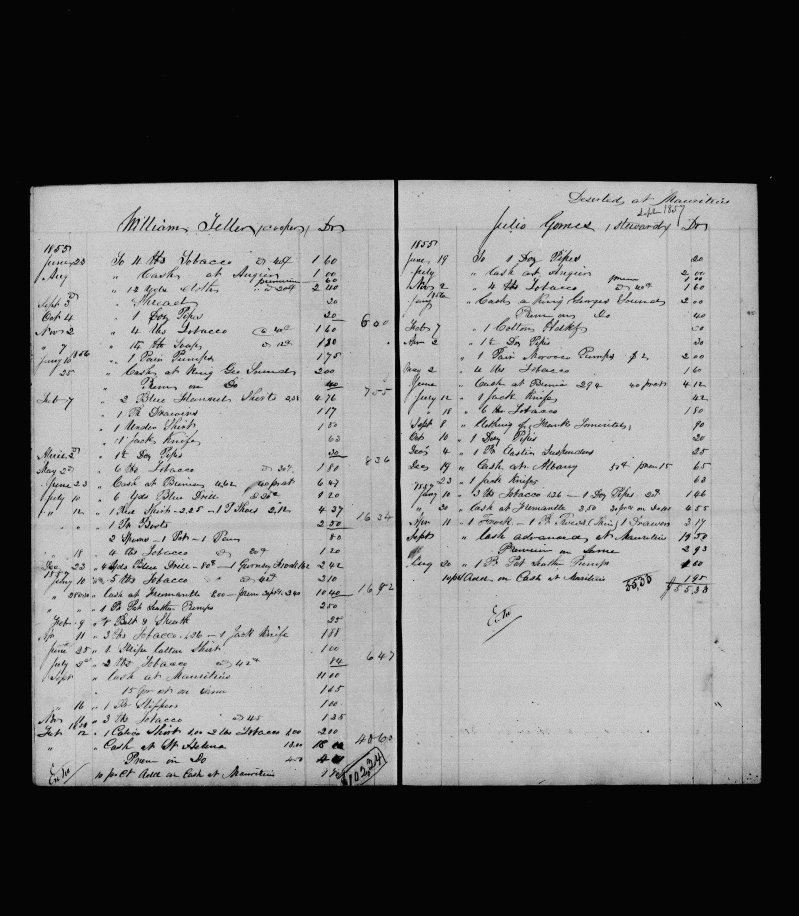 William Teller (Cooper) Dr
1855
June 23 To 4 lbs Tobacco @ 40¢ 1 60
Aug " Cash at Angier 1 00
" premium 60
" 12 yds Cloth " @ 20¢ 2 40
Sept 3d " Thread 20
Oct 4 " 1 Doz Pipes 20 6 00
Nov 2 " 4 lbs Tobacco @ 40¢ 1 60
" 7 " lbs Soap @ 12¢ 1 80
Jany 10 1856 " 1 Pair Pumps 1 75
" 25 " Cash at King Geo Sounds 2 00
" Prem on Do 40 7 55
Feb 7 " 2 Blue Flannel Shirts 4 76
" 1 Pr Drawers 1 17
" 1 Under Shirt 1 50
" 1 Jack Knife 63
" Doz Pipes 30 8 36
May 2d " 6 lbs Tobacco @ 30¢ 1 80
June 23 " Cash at Bunia 4.62 40 pr ct 6 47
July 10 " 6 yds Blue Drill @ 20¢ 1 20
" 12 " 1 Red Shirt - 2.25 - 1 P Shoes 2.12 4 37
" " 1 Pr Boots 2 50 16 34
2 Spoons - 1 Pot - 1 Pan 80
" 18 " 4 lbs Tobacco @ 30¢ 1 20
Dec 23 " 4 yds Blue Drill - 80¢ - 1 Gurnsey Frock 1.62 2 42
1857
Jany 10 " 5 lbs Tobacco @ 42¢ 2 10
" " Cash at Fremantle 8.00 - prem 30 pr ct 2.40 10 40 16 92
" " 1 Pr Pat Leather Pumps 2 50
Feb 9 " Belt & Sheath 25
Apr 11 " 3 lbs Tobacco 1.26 - 1 Jack Knife 1 88
June 25 " 1 Stripe Cotton Shirt 1 00
July 2d " 2 lbs Tobacco @ 42¢ 84 6 47
Sept " Cash at Mauritius 11 00
15 pr ct on same 1 65
" 16 " 1 Pr Slippers 1 00
Nov 10 " 3 lbs Tobacco @ 45 1 35
Feb 12 " 1 Calico Shirt 1.00 2 lbs Tobacco 1.00 2 00
" Cash at St Helena
Prem on Do 40 60
Ex. Ted 10 pr Ct Add on Cash at Mauritius 102,24
Deserted at Mauritius
Sept 1857
Julio Gomes (Steward) Dr
1855
June 19 To 1 Doz Pipes 20
July " Cash at Angier 2 00
prem 1 00
Nov 2 " 4 lbs Tobacco @ 40¢ 1 60
Jany 1856 " Cash a King Georges Sounds 2 00
Prem on Do 40
Feb 7 " 1 Cotton Hdkf
Mar 2 " Doz Pipes 30
" 1 Pair Morocco Pumps $2 2 00
May 2 " 4 lbs Tobacco 1 60
June " Cash at Bunia 2 94 40 pr ct 4 12
July 12 " 1 Jack Knife 42
" 18 " 6 lbs Tobacco 1 80
Sept 8 " Clothing of Frank 90
Oct 10 " 1 Doz Pipes 20
Dec 4 " 1 Pr Elastic Suspenders 25
Dec 19 " Cash at Albany 50¢ prem 15 65
" 23 " 1 Jack Knife 63
1857
Jany 10 " 3 lbs Tobacco 1.26 - 1 Doz Pipes 20¢ 1 46
" 20 " Cash at Fremantle 3.50 30 pr ct on Do 1.05 4 55
Apr 11 " 1 Frock - 1 Pr 1 Drawers 3 17
Sept " Cash advanced at Mauritius 19 50
Premium on Same 2 93
Aug 20 " 1 Pr Pat Leather Pumps
10 pr ct Add. on Cash at Mauritius 1 95
55,33 $55,33
Ex. Ted